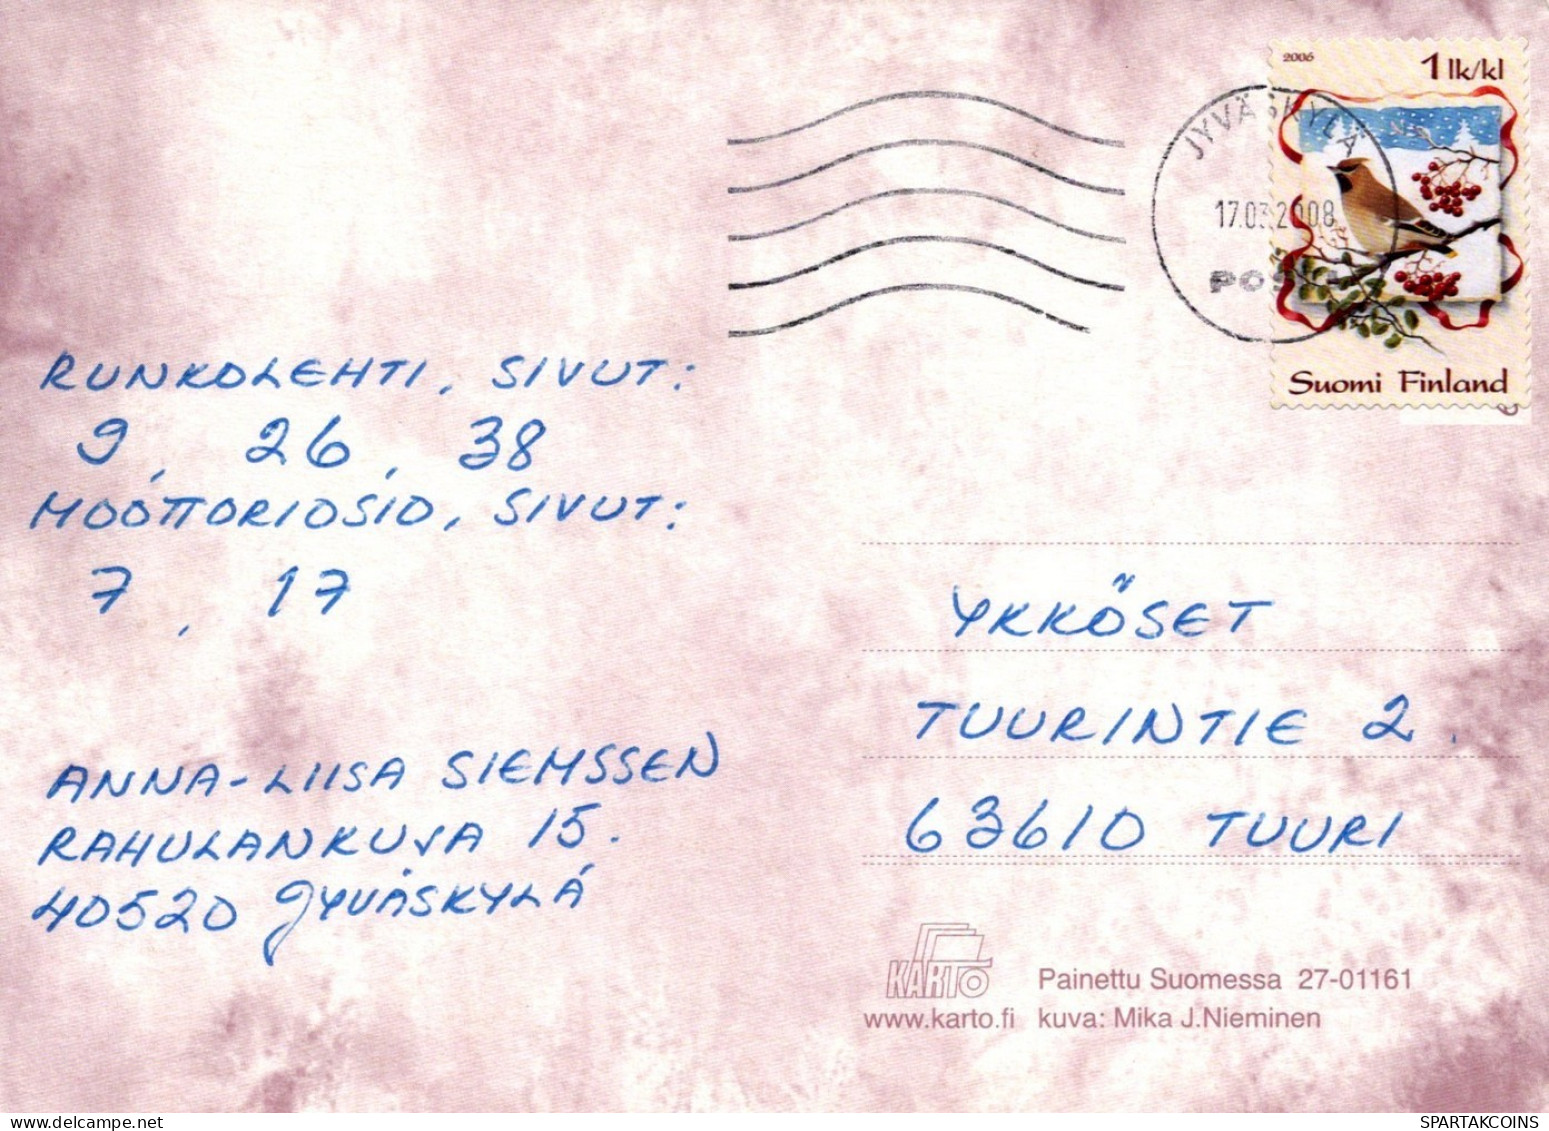 2006
1 lk/kl
JYVÄSKYLÄ
17.03.2008
POSTI
Suomi Finland
RUNKOLEHTI, SIVUT:
9, 26, 38
MOOTTORIOSIO, SIVUT:
7, 17
YKKÖSET
TUURINTIE 2.
63610 TUURI
ANNA-LIISA SIEMSSEN
RAHULANKUJA 15.
40520 JYVÄSKYLÄ
KARTO
Painettu Suomessa 27-01161
www.karto.fi kuva: Mika J.Nieminen
SPARTAKCOINS
www.delcampe.net